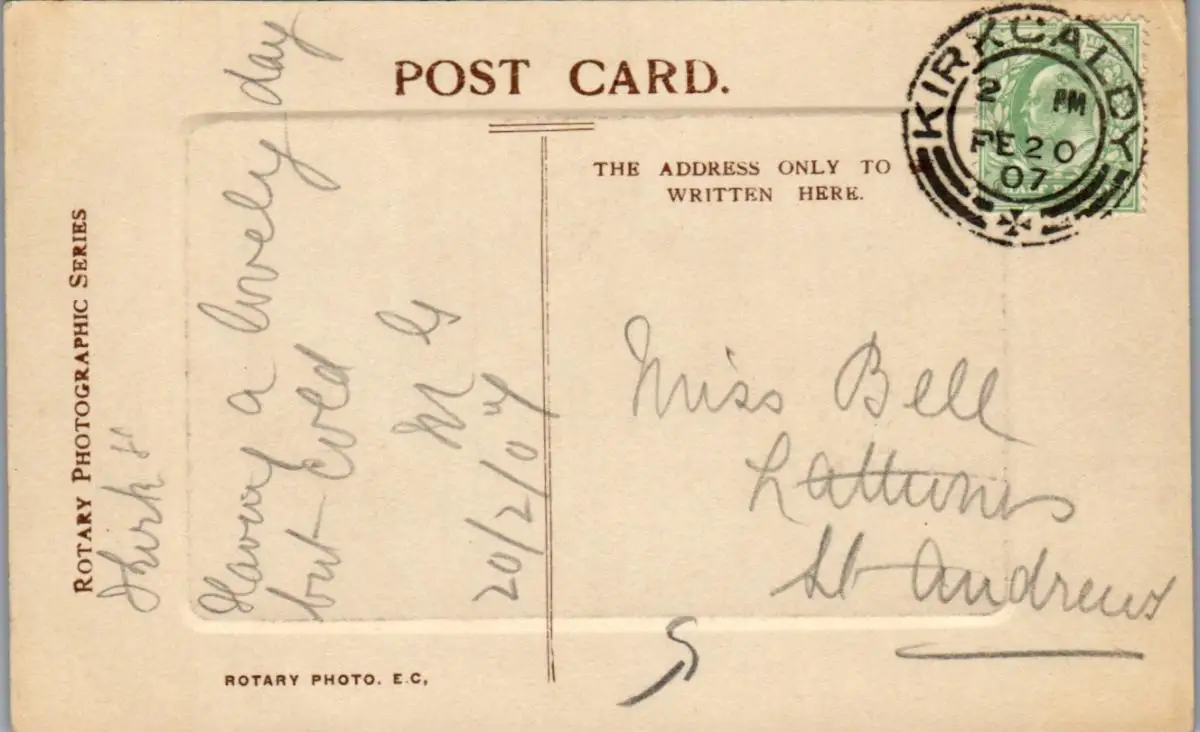 POST CARD.
THE ADDRESS ONLY TO
WRITTEN HERE.
KIRKCALDY
2 PM
FE 20
07
ROTARY PHOTOGRAPHIC SERIES
Having a lovely day
but cold
M G
20/2/07
Miss Bell
St Andrews
ROTARY PHOTO. E.C,